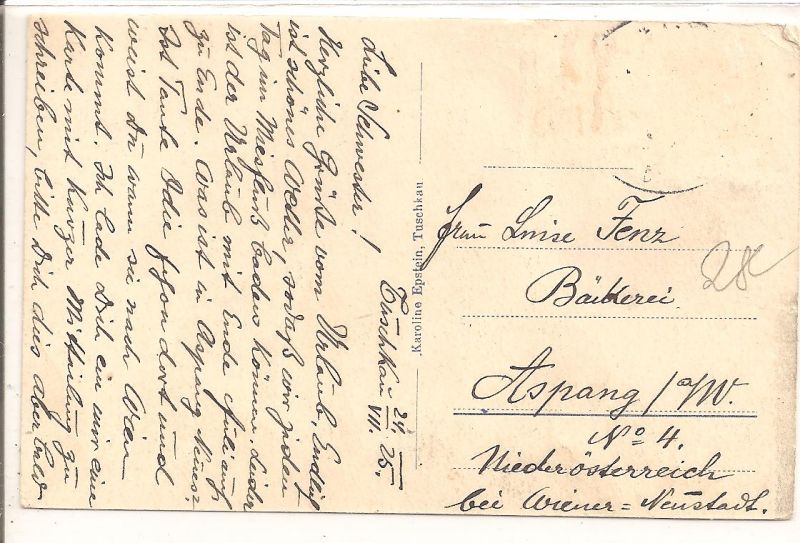 Tuschkau 24./VII. 25.
Liebe Schwester!
Herzliche Grüße vom Urlaub. Endlich
ist schönes Wetter, sodaß wir jeden
Tag im Miesfluß baden können. Leider
ist der Urlaub mit Ende Juli auch
zu Ende. Was ist in Aspang Neues?
Ist Tante Idie schon dort und
weist Du wann sie nach Wien
kommt. Ich lade Dich ein mir eine
Karte mit kurzer Mitteilung zu
schreiben, bitte Dich dies aber bald
Karoline Epstein, Tuschkau
Frau Luise Fenz
Bäckerei
Aspang/a/W.
No 4.
Niederösterreich
bei Wiener=Neustadt.